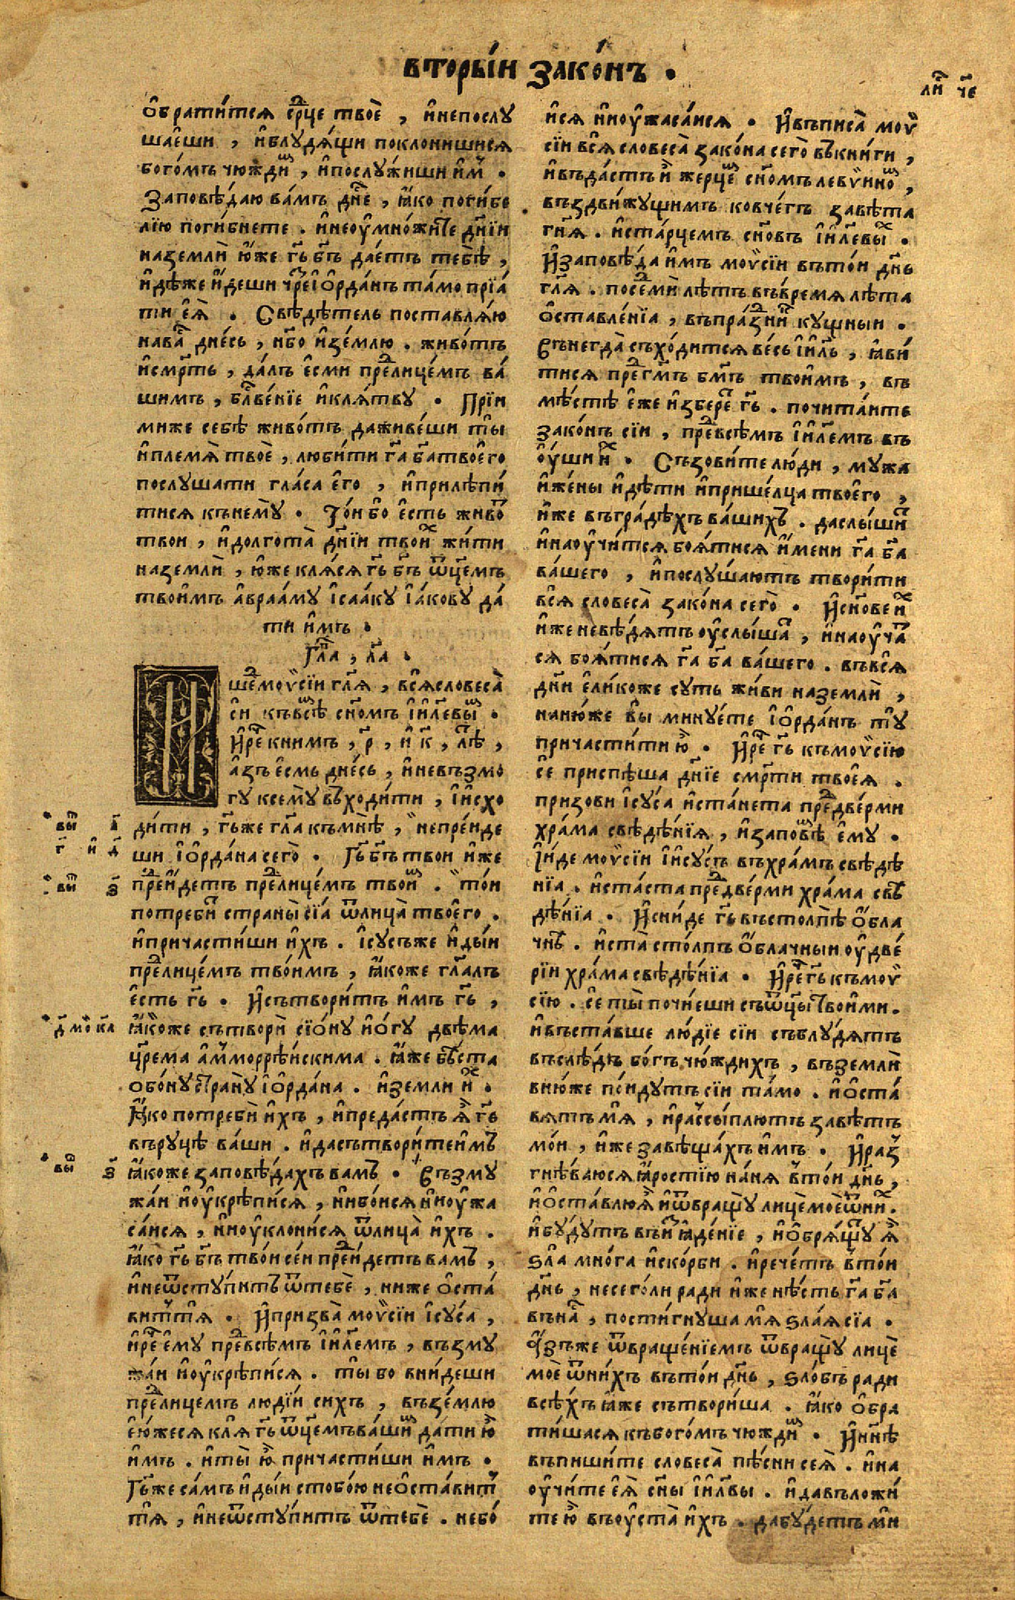 вторы́и зако́нъ .
ли҃ чє
ѻ҆брати́тсѧ ср҃це твоѐ , и҆непослꙋ
шае҆ши , и҆блꙋдѧ́щи поклонишисѧ
бого́мъ чюжди́м , и҆послꙋ́жиши и҆́м .
Заповѣ́даю ва́мъ дн҃е , ꙗ҆́ко поги́бе
лїю поги́бнете . и҆неоу҆мно́жите дн҃їи
наземлѝ ю҆́же гь҃ бг҃ъ дае́тъ тебѣ̀ ,
и҆дѣ́же и҆́деши чре́ї҆ѻрда́нъ та́мо прїа́
ти е҆ѧ̀ . Свѣдѣ́тель поставлѧ́ю
нава́ дне́сь , не҆бо и҆зе́млю . живо́тъ
и҆сме́рть , да́лъ е҆сми пре́лице́мъ ва́
шимъ , бл҃ве́нїе и҆клѧ́твꙋ . Прїи
миже себѣ̀ живо́тъ дажи́ве́ши ты̀
и҆племѧ̀ твоѐ , люби́ти га҃ ба҃твоего̀
послꙋшати гла́са е҆го̀ , и҆прилѣпи́
тисѧ кънемꙋ̀ . То́и бо е҆́сть живо́т
твои , и҆долгота̀ дн҃їи твои́х жи́ти
наземлѝ , ю҆́же клѧ́сѧ гь҃ бг҃ъ ѿц҃емъ
твои́мъ а҆враа́мꙋ і҆саа́кꙋ і҆а́ковꙋ да́
ти и҆̀мъ .
Гла҃ , ла҃ .
И
ше́моѵ҆сїи гл҃ѧ , всѧ̀словеса̀
сѝ къвсѣ́ сн҃омъ і҆и҃левы́м .
И҆ре́ книмъ , р҃ , и҆ к҃ , лѣ́ ,
а҆́зъ е҆́смь дне́сь , и҆невъзмо
гꙋ ксемꙋ̀ въ́ходи́ти , і҆и҆схо
ди́ти , гь҃же гл҃а къмнѣ̀ , непре́иде
ши і҆ѻрда́на сего̀ . Гь҃ бг҃ъ твои и҆́же
пре́и́детъ пре́лице́мъ твои́м . то́и
потреби́т страны̀ сїа̀ ѿлица̀ твоего̀ .
и҆причасти́ши и҆́хъ . і҆сꙋсъже и҆ды́и
пре́лице́мъ твои́мъ , ꙗ҆́коже гл҃алъ
е҆́сть гь҃ . И҆сътвори́тъ и҆́мъ гь҃ ,
ꙗ҆́коже сътворѝ сїо́нꙋ и҆ѻ́гꙋ две́ма
цр҃ема а҆ммѻррѣ́искима . ꙗ҆́же бѣ́ста
ѻ҆бонꙋ́странꙋ̀ і҆ѻрда́на . и҆земли и҆́х .
Ꙗ҆́ко потребѝ и҆́хъ , и҆преда́стъ ѧ҆̀ гь҃
въ́рꙋцѣ̀ ва́ши . и҆дасътвори́теи҆мъ
ꙗ҆́коже заповѣ́дахъ вамъ . Възмꙋ
жа́и и҆оу҆крѣпи́сѧ , и҆небо́исѧ и҆ноу҆жа
са́исѧ , и҆ноу҆клони́сѧ ѿлица̀ и҆́хъ .
ꙗ҆́ко гь҃ бг҃ъ тво́и се́и пре́и́детъ вамъ ,
и҆неѿстꙋ́питъ ѿтебѐ , ниже ѻ҆ста́
витътѧ̀ . И҆призва̀ моѵ҆сїи і҆сꙋса ,
и҆ре́ е҆мꙋ пре́всѣмъ і҆и҃лемъ , възмꙋ
жа́и и҆оу҆крѣпи́сѧ . ты̀ бо вни́деши
пре́лицемъ людїи́ сихъ , въ́зе́млю
е҆ю́жесѧ клѧ̀ гь҃ ѿц҃емъва́шим да́ти ю҆̀
и҆́мъ . и҆ты̀ ю҆̀ причасти́ши и҆мъ .
Гь҃же са́мъ и҆ды́и стобо́ю неѻ҆ста́вит
тѧ̀ , и҆неѿстꙋ́питъ ѿтебѐ . небо́
исѧ и҆ноу҆жаса́исѧ . И҆въписа̀ моѵ҆
сїи всѧ̀ словеса̀ зако́на сего̀ въкни́ги ,
и҆въда́стъ и҆̀ жерце́м сн҃омъ левѵ҆ино́м ,
въздви́жꙋщимъ ковче́гъ завѣ́та
гн҃ѧ . и҆ста́рцемъ сн҃овъ і҆и҃левы́х .
И҆заповѣ́да и҆́мъ моѵ҆сїи въто́и дн҃ь
гл҃ѧ . посе́ми лѣ́тъ въврѐмѧ лѣ́та
ѻ҆ставле́нїа , въпра́зни́к кꙋщныи .
Вънегда̀ съхо́дитсѧ ве́сь і҆и҃ль , ꙗ҆ви́
тисѧ пре́гм҃ъ бм҃ъ твоимъ , въ
мѣ́стѣ е҆́же и҆збере́т гь҃ . почита́итѣ
зако́нъ сїи , пре́всѣмъ і҆и҃лемъ въ
оу҆́ши и҆́х . Съзови́те лю́ди , мꙋ́жа
и҆же́ны и҆дѣ́ти и҆прише́лца твоего̀ ,
и҆́же въ́гра́дѣхъ ва́шихъ . даслы́ши́т
и҆нао҆ꙋчи́тсѧ боѧ́тисѧ и҆́мени га҃ ба҃
ва́шего , и҆послꙋ́шаютъ твори́ти
всѧ̀ словеса̀ зако́на сего̀ . И҆сн҃ове и҆́х
и҆́же невѣ́дѧтъ оу҆слы́ша́т , и҆наоу҆ча́т
сѧ боѧ́тисѧ га҃ ба҃ ва́шего . въ́всѧ̀
дн҃и е҆ли́коже сꙋ́ть жи́ви наземлѝ ,
наню́же вы̀ минꙋ́ете і҆ѻрда́нъ тꙋ̀
причасти́ти ю҆̀ . И҆ре́ гь҃ къмоѵ҆сїю
сѐ приспѣ́ша дн҃їе сме́рти твоеѧ̀ .
призови і҆сꙋса и҆ста́нета пре́две́рми
хра́ма свѣдѣ́нїѧ , и҆заповѣ́ е҆мꙋ .
І҆и҆де моѵ҆сїи і҆и҆сꙋсъ въхра́мъ свѣдѣ́
нїа . и҆ста́ста пре́две́рми хра́ма свѣ
дѣ́нїа . И҆сни́де гь҃ въстолпѣ̀ ѻ҆́бла
чнѣ́ . и҆ста̀ сто́лпъ ѻ҆́блачныи оу҆две́
рїи хра́ма свѣдѣ́нїа . И҆ре́ гь҃ къмоѵ҆
сїю . сѐ ты̀ почи́еши съѿцы̀твои́ми .
и҆въста́вше лю́дїе сїи съблꙋ́дѧтъ
въслѣ́дъ бо́гъ чю́ждихъ , въ́землѝ
вню́же пои́дꙋтъ сїи та́мо . и҆ѻ҆ста́
вѧтъ мѧ̀ , и҆ра́ссы́плютъ завѣ́тъ
мо́и , и҆́же завѣща́хъ и҆мъ . И҆раз
гнѣ́ваюсѧ ꙗ҆́ростїю на́нѧ вто́и дн҃ь ,
и҆ѻ҆ста́влюѧ҆̀ и҆ѿвращꙋ̀ лице́моеѿни́х .
и҆бꙋ́дꙋтъ въи҆ѧде́нїе , и҆ѻ҆брѧ́щꙋт ѧ҆̀
ѕла̀ мно́га и҆ско́рби . и҆рече́тъ вто́и
дн҃ь , несего́ли ради и҆́же нѣ́сть га҃ ба҃
въна́с , пости́гнꙋша мѧ̀ ѕла́ѧ сїа .
А҆́зъже ѿвраще́нїемъ ѿвращꙋ̀ лицѐ
моѐ ѿни́хъ въто́и дн҃ь , ѕло́бъ ради
всѣ́хъ ꙗ҆́же сътвори́ша . ꙗ҆́ко ѻ҆бра
ти́шасѧ къбого́мъ чюжди́м . И҆ннѣ҃
въпиши́те словеса̀ пѣ́сни сеѧ̀ . и҆на
оу҆чи́те е҆ѧ̀ сн҃ы і҆и҃лвы . и҆давъло́жи́
те ю҆̀ въоу҆ста̀ и҆́хъ . дабꙋ́детъ мѝ
вы́т а҃
г҃ и҆ д҃
вы́т з҃
д҃ мо҃ ка҃
вы́т з҃